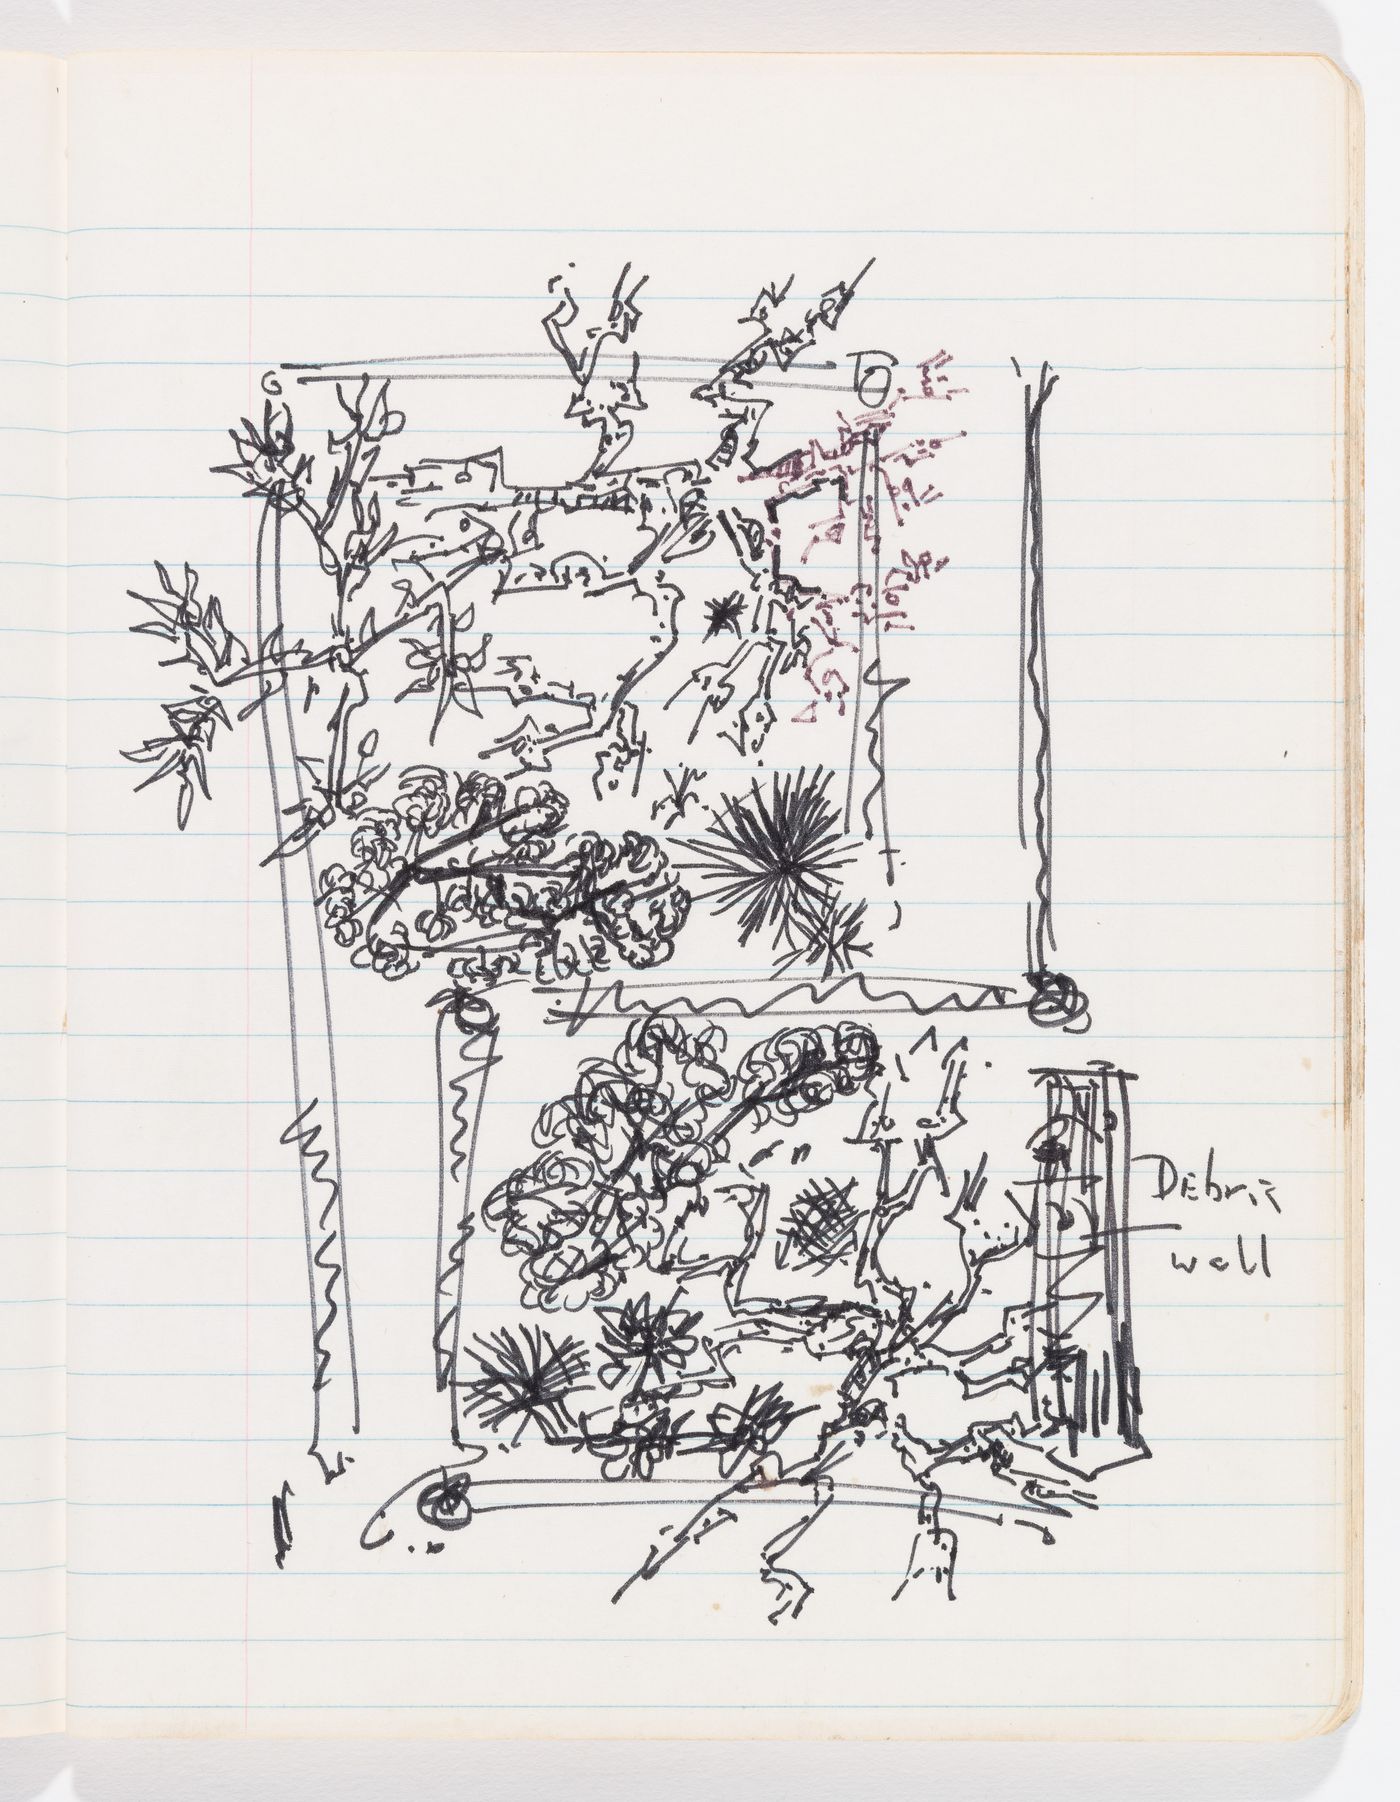 Debris
wall